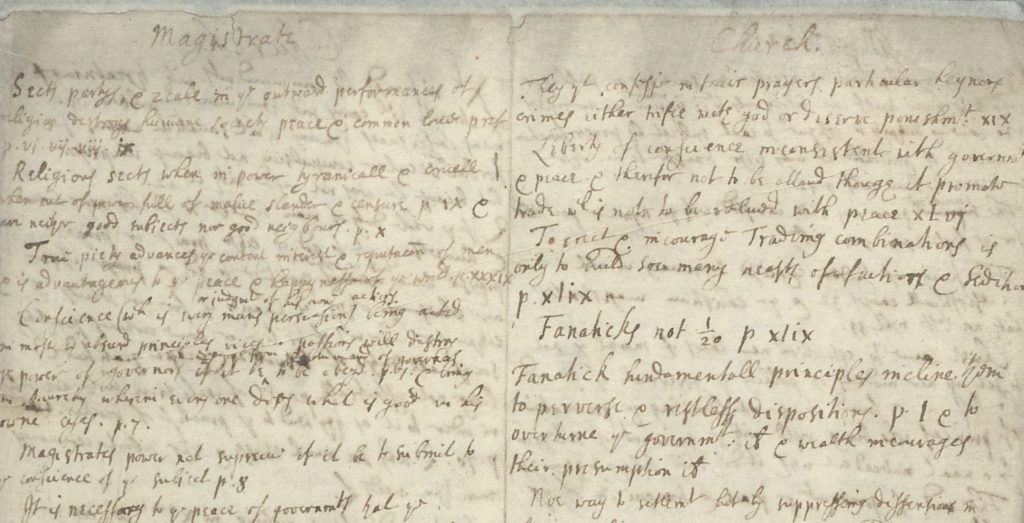 Magistrate
Sects, partys, & zeale in ye outward performances of
religion destroys humane society peace & common love. pref
p. vi. vii. viii. ix
Religious sects when in power tyranicall & cruell
when out of power full of malice slander & censure p. ix &
are neither good subjects nor good neighbours. p. x
True piety advances ye content interest & reputation of men
& is advantageous to ye peace & happynesse of ye world p. xxxix
or judgmt of his own actions
Conscience (wch is every mans perswasions being acted
most absurd principles vices & passions will destroy
power of governors if it be to be obeyd. p. 7. & bring
Anarchy wherein every one does what is good in his
owne eyes. p. 7.
Magistrates power not supreme if it be to submit to
conscience of ye subject p. 8
It is necessary to ye peace of governmts that ye
Church.
They yt confesse in their prayers particular heynous
crimes either trifle with god or deserve punishmt. xix
Liberty of conscience inconsistent with governmt
& peace & therefor not to be allowd though it promote
trade wch is not to be valued with peace xlvj
To erect & incourage Trading combinations is
only to build soe many neasts of faction & Sedition
p. xlix
Fanaticks not 1/20 p xlix
Fanatick fundamentall principles incline them
to perverse & restlesse dispositions. p. l & to
overturne ye governmt. it & wealth incourages
their presumption ib
Noe way to settlemt but by suppressing dissensions in